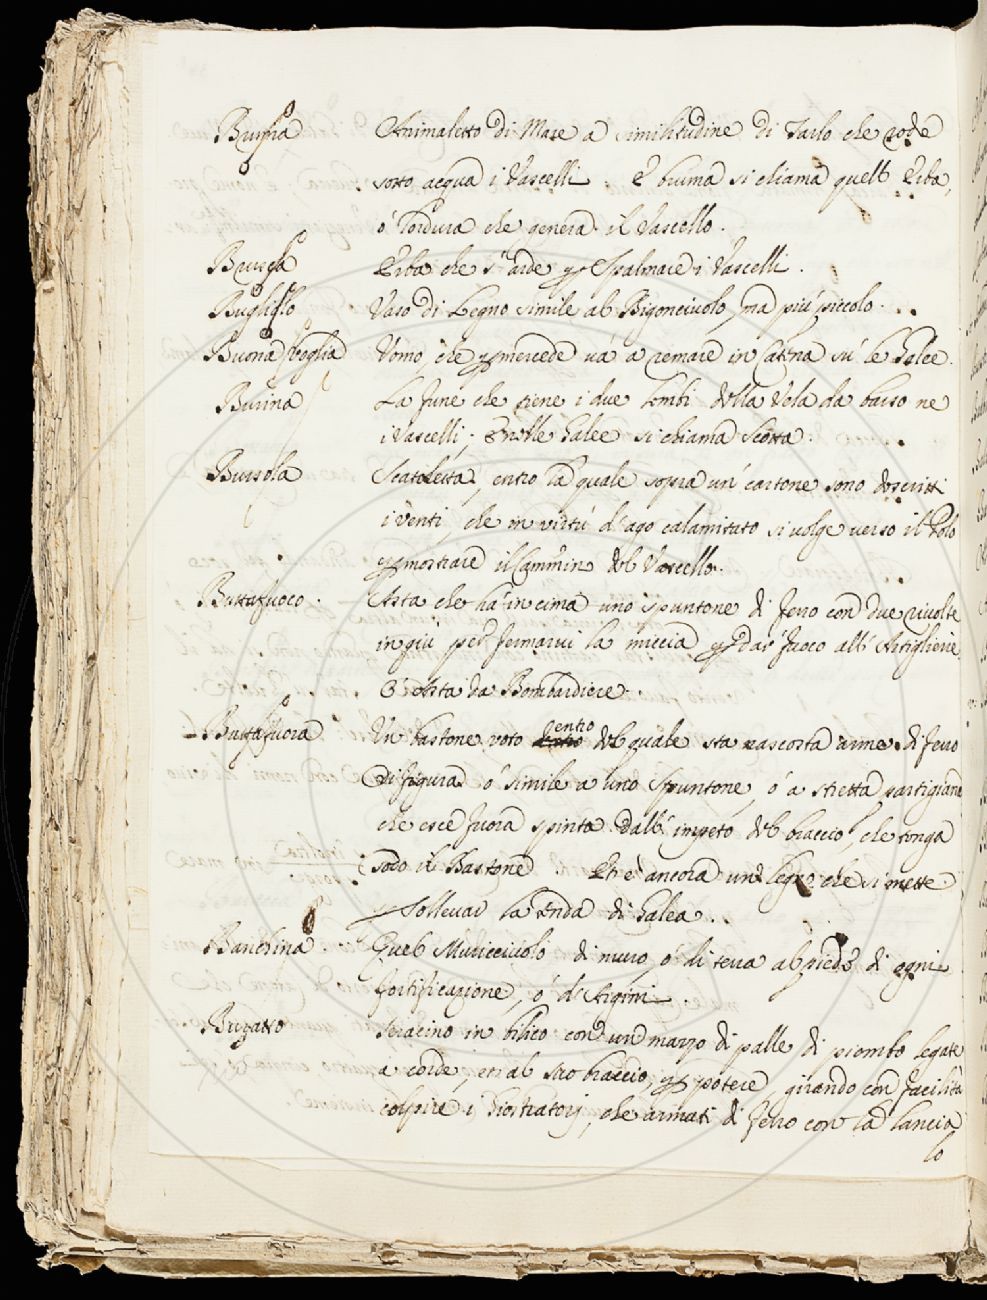 Bruma Animaletto di Mare a similitudine di Tarlo che rode
sotto acqua i Vascelli. E bruma si chiama quell' Erba,
ó lordura che genera il Vascello.
Brusca Erba che s'arde p Spalmare i Vascelli.
Bugliolo Vaso di Legno simile al Bigonciuolo, ma più piccolo.
Buona voglia Uomo, che p mercede và a remare in Catena sù le Galee.
Burina La fune che tiene i due lembi della Vela da basso ne
i Vascelli; E nelle Galee si chiama Scotta.
Bussola Scatoletta, entro la quale sopra un' cartone sono descritti
i venti, che in virtù d'ago calamitato si volge verso il Polo
p mostrare il Cammino del Vascello.
Buttafuoco. Asta che hà in cima uno spuntone di ferro con due rivolte
in giù per fermarvi la miccia p dar' fuoco all' Artiglierie.
O' Asta da Bombardiere.
Buttafuora Un bastone voto entro del quale sta nascosta arme di ferro
di figura ò simile a uno Spuntone, ó a stretta partigiana
che esce fuora spinta dall' impeto del braccio, che tenga
sodo il Bastone. Et è ancora un legno che si mette
p sollevar la tenda di Galea.
Banchina Quel Muricciuolo di muro, ó di terra al piede di ogni
fortificazione, ó d'Argini.
Buratto Saracino in bilico con un mazzo di palle di piombo legate
a corde, in al suo braccio, p potere, girando con facilità
colpire i Giostratorj, che armati di ferro con la lancia
lo